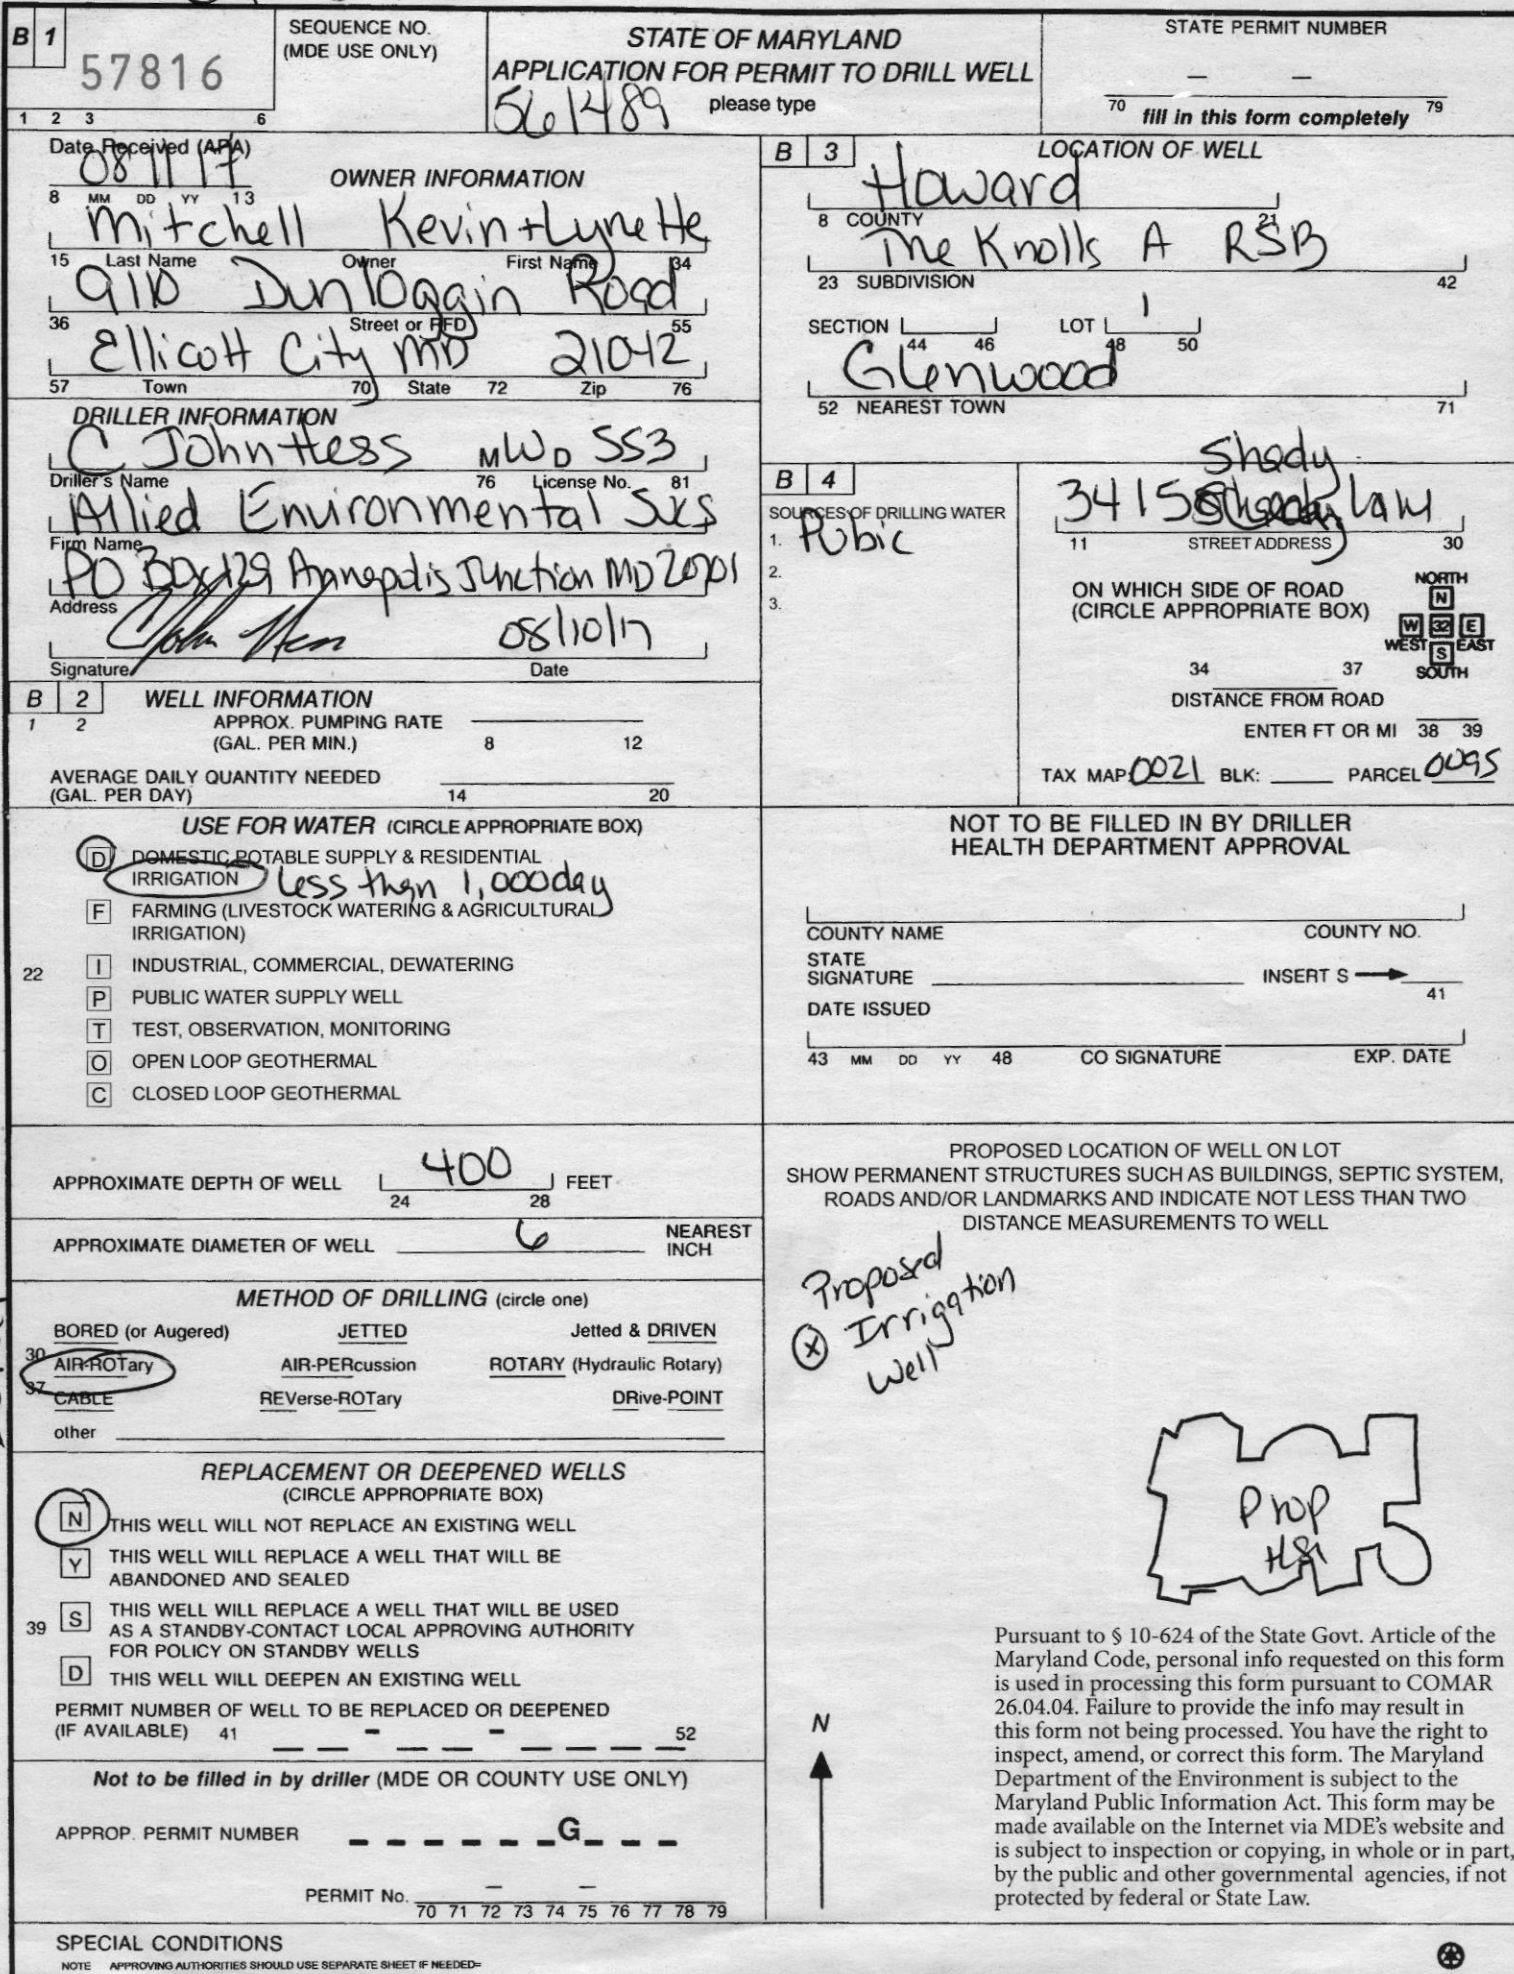 B 1
57816
1 2 3 6
SEQUENCE NO.
(MDE USE ONLY)
STATE OF MARYLAND
APPLICATION FOR PERMIT TO DRILL WELL
please type
561489
STATE PERMIT NUMBER
– –
70 79
fill in this form completely
Date Received (APA)
08 11 17
8 MM DD YY 13
OWNER INFORMATION
Mitchell Kevin + Lynette
15 Last Name Owner First Name 34
9110 Dunloggin Road
36 Street or RFD 55
Ellicott City MD 21042
57 Town 70 State 72 Zip 76
DRILLER INFORMATION
C John Hess MWD 553
Driller's Name 76 License No. 81
Allied Environmental Svcs
Firm Name
PO Box 129 Annapolis Junction MD 20701
Address
C John Hess 08/10/17
Signature Date
B 2 WELL INFORMATION
1 2 APPROX. PUMPING RATE
(GAL. PER MIN.) 8 12
AVERAGE DAILY QUANTITY NEEDED
(GAL. PER DAY) 14 20
USE FOR WATER (CIRCLE APPROPRIATE BOX)
D DOMESTIC POTABLE SUPPLY & RESIDENTIAL
IRRIGATION Less than 1,000 day
F FARMING (LIVESTOCK WATERING & AGRICULTURAL
IRRIGATION)
22 I INDUSTRIAL, COMMERCIAL, DEWATERING
P PUBLIC WATER SUPPLY WELL
T TEST, OBSERVATION, MONITORING
O OPEN LOOP GEOTHERMAL
C CLOSED LOOP GEOTHERMAL
APPROXIMATE DEPTH OF WELL 400 FEET
24 28
APPROXIMATE DIAMETER OF WELL 6 NEAREST
INCH
METHOD OF DRILLING (circle one)
BORED (or Augered) JETTED Jetted & DRIVEN
30 AIR-ROTary AIR-PERcussion ROTARY (Hydraulic Rotary)
37 CABLE REVerse-ROTary DRive-POINT
other
REPLACEMENT OR DEEPENED WELLS
(CIRCLE APPROPRIATE BOX)
N THIS WELL WILL NOT REPLACE AN EXISTING WELL
Y THIS WELL WILL REPLACE A WELL THAT WILL BE
ABANDONED AND SEALED
39 S THIS WELL WILL REPLACE A WELL THAT WILL BE USED
AS A STANDBY-CONTACT LOCAL APPROVING AUTHORITY
FOR POLICY ON STANDBY WELLS
D THIS WELL WILL DEEPEN AN EXISTING WELL
PERMIT NUMBER OF WELL TO BE REPLACED OR DEEPENED
(IF AVAILABLE) 41 - - 52
Not to be filled in by driller (MDE OR COUNTY USE ONLY)
APPROP. PERMIT NUMBER G
PERMIT No. – –
70 71 72 73 74 75 76 77 78 79
SPECIAL CONDITIONS
NOTE APPROVING AUTHORITIES SHOULD USE SEPARATE SHEET IF NEEDED=
B 3 LOCATION OF WELL
Howard
8 COUNTY 21
The Knolls A RSB
23 SUBDIVISION 42
SECTION LOT 1
44 46 48 50
Glenwood
52 NEAREST TOWN 71
B 4
SOURCES OF DRILLING WATER
1. Pubic
2.
3.
Shady
3415 Lane
11 STREET ADDRESS 30
ON WHICH SIDE OF ROAD
(CIRCLE APPROPRIATE BOX)
NORTH
N
W 32 E
WEST S EAST
SOUTH
34 37
DISTANCE FROM ROAD
ENTER FT OR MI 38 39
TAX MAP: 0021 BLK: PARCEL 0095
NOT TO BE FILLED IN BY DRILLER
HEALTH DEPARTMENT APPROVAL
COUNTY NAME COUNTY NO.
STATE
SIGNATURE INSERT S
41
DATE ISSUED
43 MM DD YY 48 CO SIGNATURE EXP. DATE
PROPOSED LOCATION OF WELL ON LOT
SHOW PERMANENT STRUCTURES SUCH AS BUILDINGS, SEPTIC SYSTEM,
ROADS AND/OR LANDMARKS AND INDICATE NOT LESS THAN TWO
DISTANCE MEASUREMENTS TO WELL
Proposed
X Irrigation
Well
Prop
HSe
N
Pursuant to § 10-624 of the State Govt. Article of the
Maryland Code, personal info requested on this form
is used in processing this form pursuant to COMAR
26.04.04. Failure to provide the info may result in
this form not being processed. You have the right to
inspect, amend, or correct this form. The Maryland
Department of the Environment is subject to the
Maryland Public Information Act. This form may be
made available on the Internet via MDE's website and
is subject to inspection or copying, in whole or in part,
by the public and other governmental agencies, if not
protected by federal or State Law.